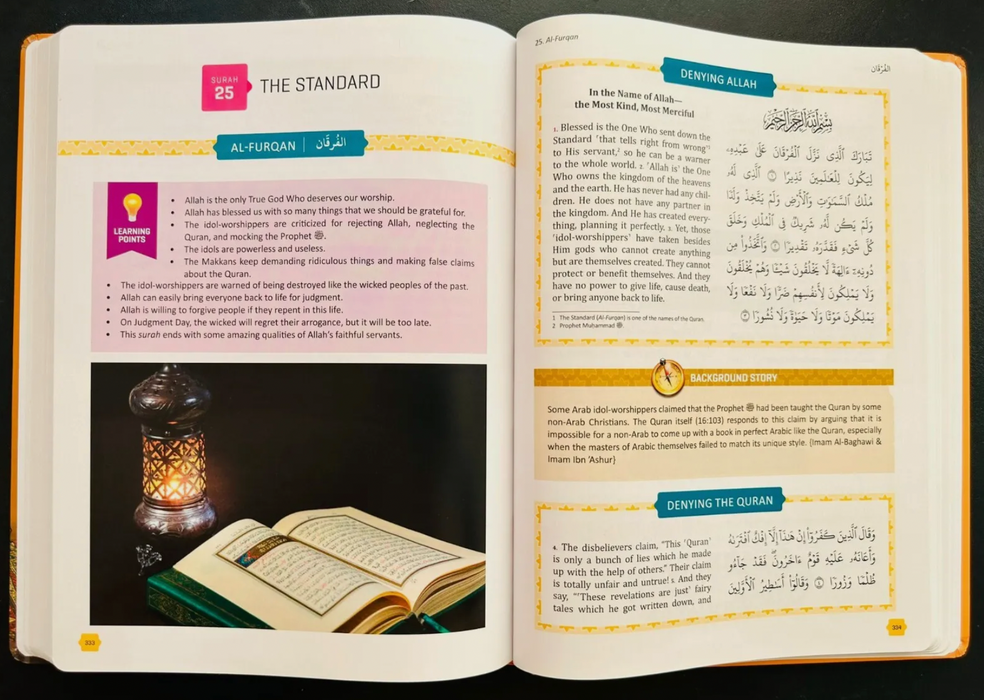 SURAH
25
THE STANDARD
AL-FURQAN | الفُرقَان
LEARNING
POINTS
• Allah is the only True God Who deserves our worship.
• Allah has blessed us with so many things that we should be grateful for.
• The idol-worshippers are criticized for rejecting Allah, neglecting the
Quran, and mocking the Prophet ﷺ.
• The idols are powerless and useless.
• The Makkans keep demanding ridiculous things and making false claims
about the Quran.
• The idol-worshippers are warned of being destroyed like the wicked peoples of the past.
• Allah can easily bring everyone back to life for judgment.
• Allah is willing to forgive people if they repent in this life.
• On Judgment Day, the wicked will regret their arrogance, but it will be too late.
• This surah ends with some amazing qualities of Allah's faithful servants.
333
25. Al-Furqan
الفُرْقَان
DENYING ALLAH
In the Name of Allah—
the Most Kind, Most Merciful
1. Blessed is the One Who sent down the
Standard ˹that tells right from wrong˺¹
to His servant,² so he can be a warner
to the whole world. 2. ˹Allah is˺ the One
Who owns the kingdom of the heavens
and the earth. He has never had any chil-
dren. He does not have any partner in
the kingdom. And He has created every-
thing, planning it perfectly. 3. Yet, those
˹idol-worshippers˺ have taken besides
Him gods who cannot create anything
but are themselves created. They cannot
protect or benefit themselves. And they
have no power to give life, cause death,
or bring anyone back to life.
1 The Standard (Al-Furqan) is one of the names of the Quran.
2 Prophet Muhammad ﷺ.
بِسْمِ اللَّهِ الرَّحْمَٰنِ الرَّحِيمِ
تَبَارَكَ ٱلَّذِى نَزَّلَ ٱلْفُرْقَانَ عَلَىٰ عَبْدِهِۦ
لِيَكُونَ لِلْعَـٰلَمِينَ نَذِيرًا ١ ٱلَّذِى لَهُۥ
مُلْكُ ٱلسَّمَـٰوَٰتِ وَٱلْأَرْضِ وَلَمْ يَتَّخِذْ وَلَدًا
وَلَمْ يَكُن لَّهُۥ شَرِيكٌ فِى ٱلْمُلْكِ وَخَلَقَ
كُلَّ شَىْءٍ فَقَدَّرَهُۥ تَقْدِيرًا ٢ وَٱتَّخَذُوا۟ مِن
دُونِهِۦٓ ءَالِهَةً لَّا يَخْلُقُونَ شَيْـًٔا وَهُمْ يُخْلَقُونَ
وَلَا يَمْلِكُونَ لِأَنفُسِهِمْ ضَرًّا وَلَا نَفْعًا وَلَا
يَمْلِكُونَ مَوْتًا وَلَا حَيَوٰةً وَلَا نُشُورًا ٣
BACKGROUND STORY
Some Arab idol-worshippers claimed that the Prophet ﷺ had been taught the Quran by some
non-Arab Christians. The Quran itself (16:103) responds to this claim by arguing that it is
impossible for a non-Arab to come up with a book in perfect Arabic like the Quran, especially
when the masters of Arabic themselves failed to match its unique style. {Imam Al-Baghawi &
Imam Ibn 'Ashur}
DENYING THE QURAN
4. The disbelievers claim, "This ˹Quran˺
is only a bunch of lies which he made
up with the help of others." Their claim
is totally unfair and untrue! 5. And they
say, "˹These revelations are just˺ fairy
tales which he got written down, and
وَقَالَ ٱلَّذِينَ كَفَرُوٓا۟ إِنْ هَـٰذَآ إِلَّآ إِفْكٌ ٱفْتَرَىٰهُ
وَأَعَانَهُۥ عَلَيْهِ قَوْمٌ ءَاخَرُونَ ۖ فَقَدْ جَآءُو
ظُلْمًا وَزُورًا ٤ وَقَالُوٓا۟ أَسَـٰطِيرُ ٱلْأَوَّلِينَ
334